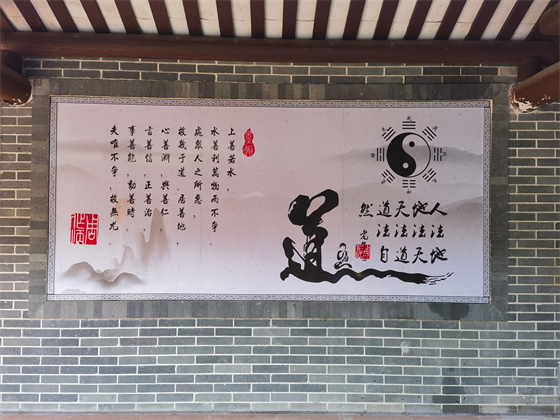 人法地
地法天
天法道
道法自
然
道
上善若水，
水善利萬物而不爭，
處眾人之所惡，
故幾于道，居善地，
心善淵，與善仁
言善信，正善治
事善能，動善時
夫唯不爭，故無尤。